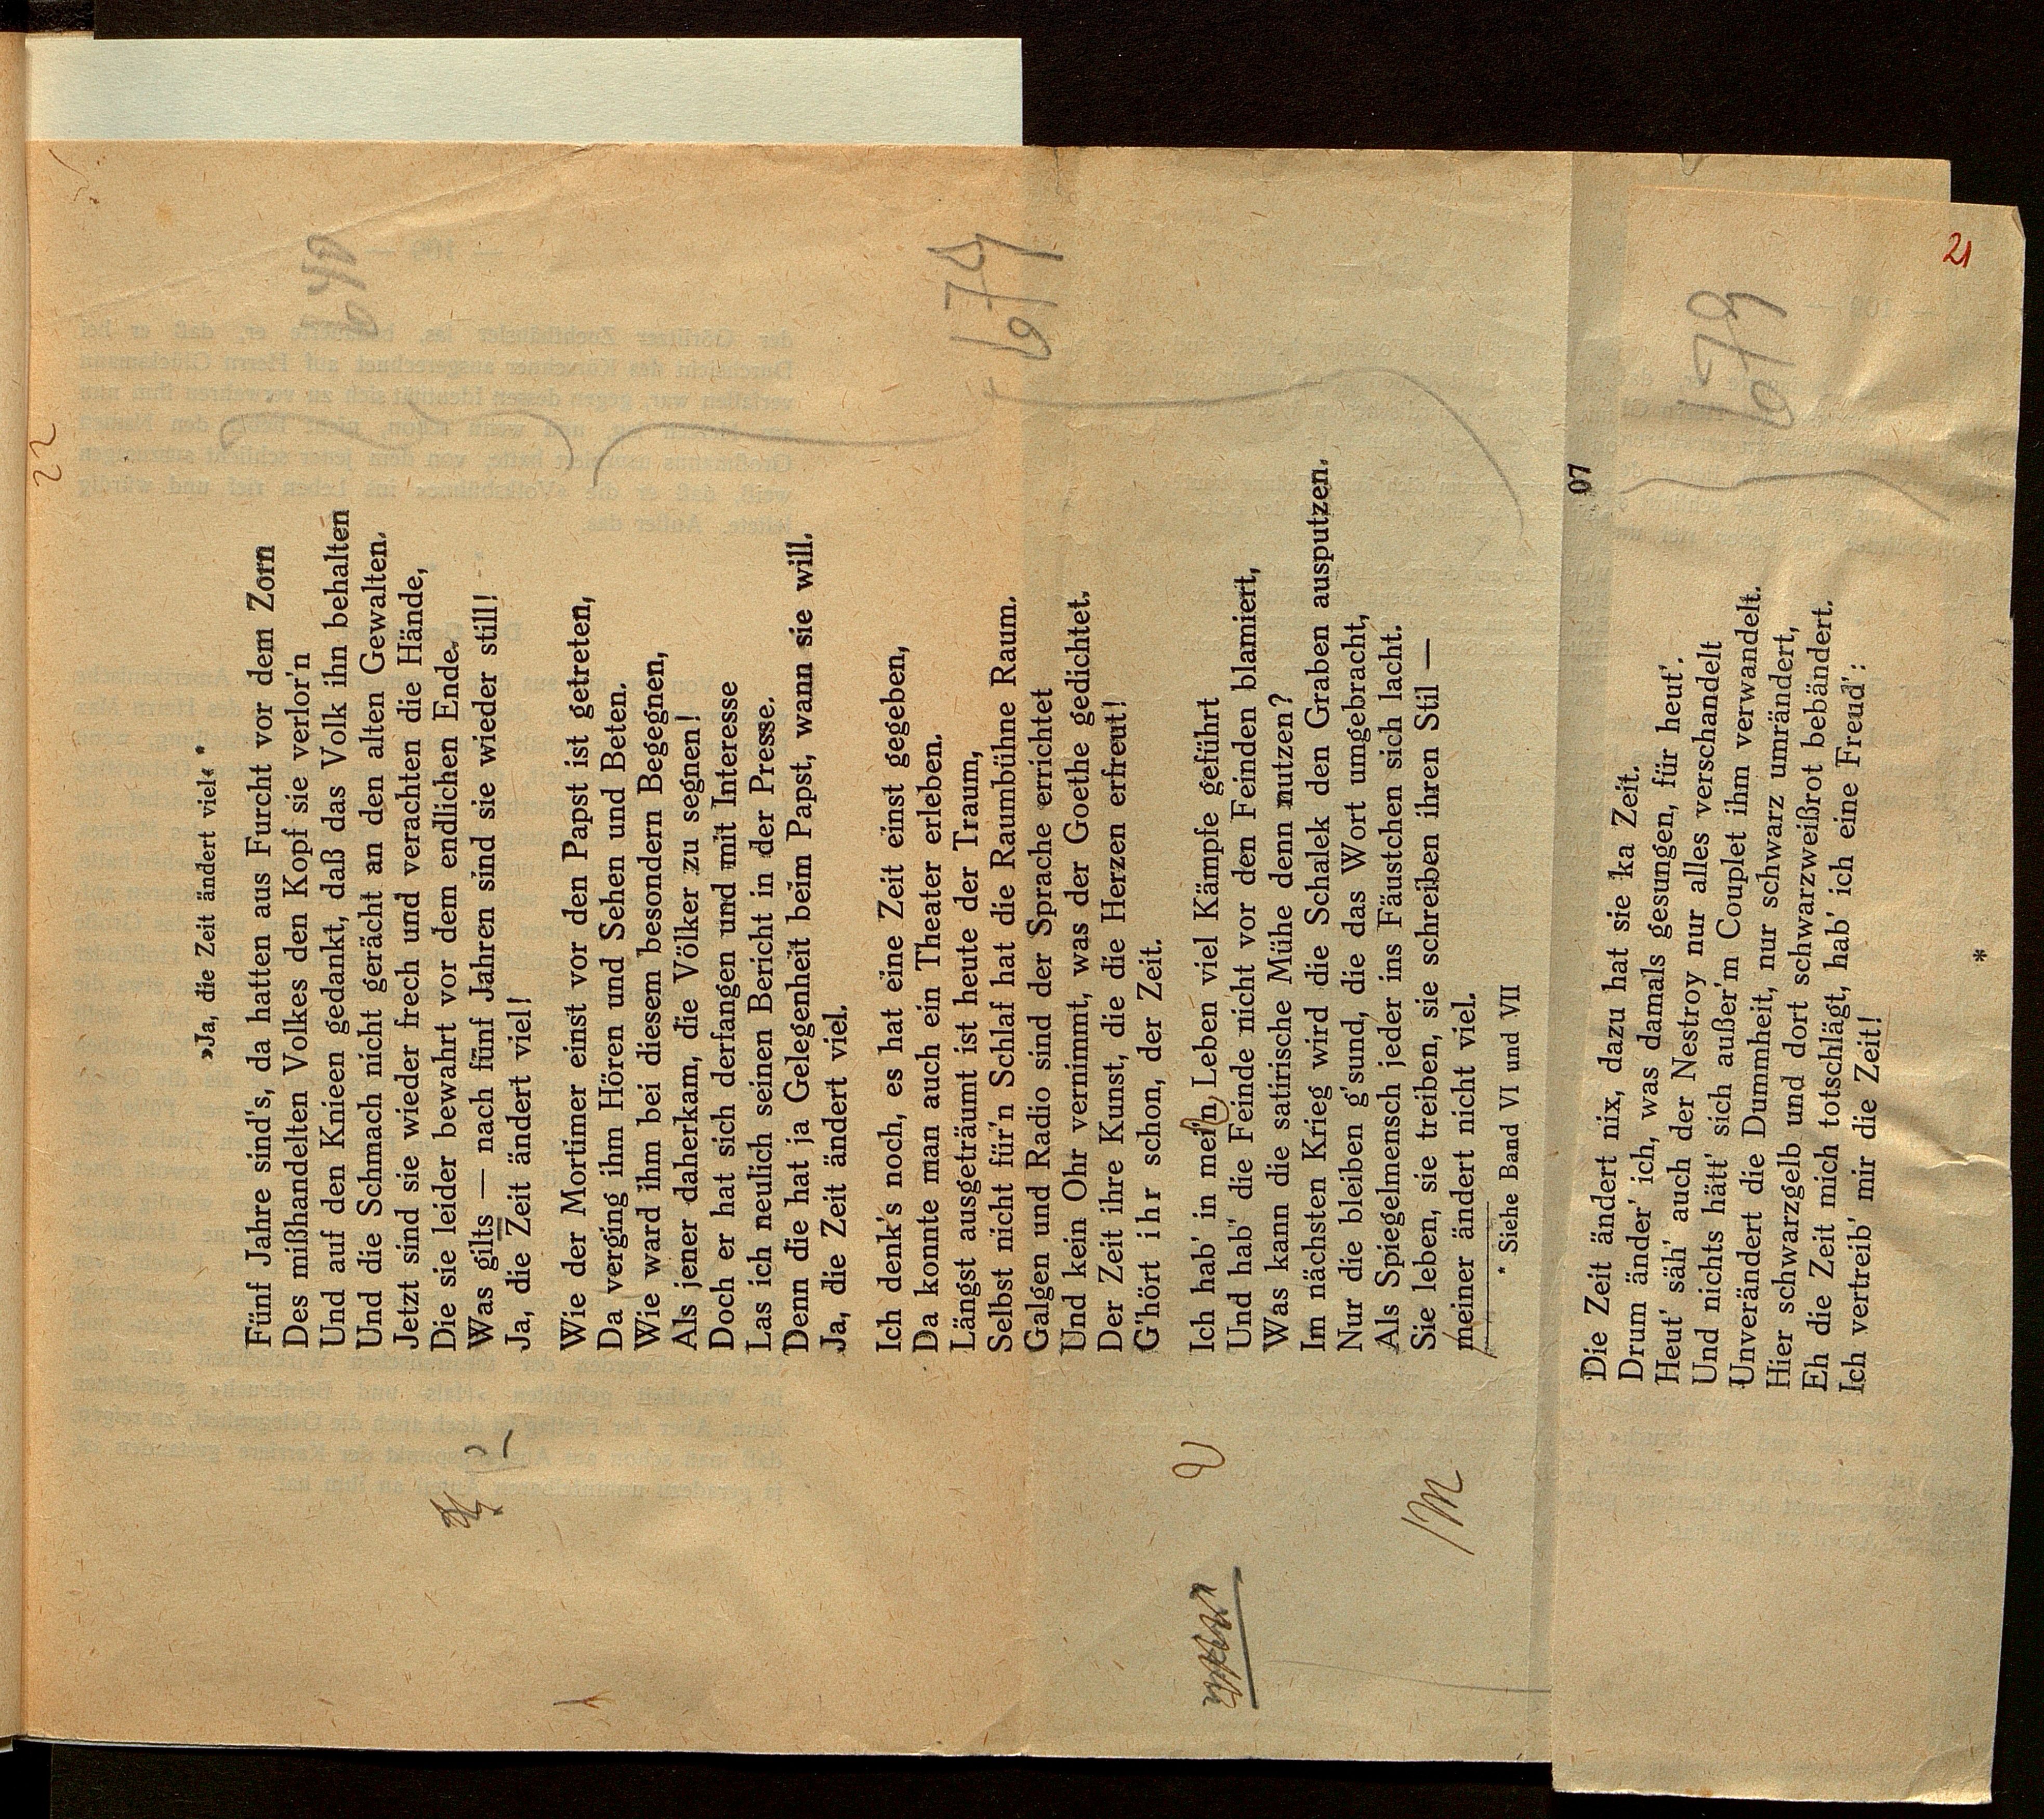 22
»Ja, die Zeit ändert viel« *
Fünf Jahre sind's, da hatten aus Furcht vor dem Zorn
Des mißhandelten Volkes den Kopf sie verlor'n
Und auf den Knieen gedankt, daß das Volk ihn behalten
Und die Schmach nicht gerächt an den alten Gewalten.
Jetzt sind sie wieder frech und verachten die Hände,
Die sie leider bewahrt vor dem endlichen Ende.
Was gilts — nach fünf Jahren sind sie wieder still!
Ja, die Zeit ändert viel!
Wie der Mortimer einst vor den Papst ist getreten,
Da verging ihm Hören und Sehen und Beten.
Wie ward ihm bei diesem besondern Begegnen,
Als jener daherkam, die Völker zu segnen!
Doch er hat sich derfangen und mit Interesse
Las ich neulich seinen Bericht in der Presse.
Denn die hat ja Gelegenheit beim Papst, wann sie will.
Ja, die Zeit ändert viel.
Ich denk's noch, es hat eine Zeit einst gegeben,
Da konnte man auch ein Theater erleben.
Längst ausgeträumt ist heute der Traum,
Selbst nicht für'n Schlaf hat die Raumbühne Raum.
Galgen und Radio sind der Sprache errichtet
Und kein Ohr vernimmt, was der Goethe gedichtet.
Der Zeit ihre Kunst, die die Herzen erfreut!
G'hört ihr schon, der Zeit.
Ich hab' in mei'n Leben viel Kämpfe geführt
Und hab' die Feinde nicht vor den Feinden blamiert,
Was kann die satirische Mühe denn nutzen?
Im nächsten Krieg wird die Schalek den Graben ausputzen.
Nur die bleiben g'sund, die das Wort umgebracht,
Als Spiegelmensch jeder ins Fäustchen sich lacht.
Sie leben, sie treiben, sie schreiben ihren Stil —
meiner ändert nicht viel.
* Siehe Band VI und VII
674
07
Die Zeit ändert nix, dazu hat sie ka Zeit.
Drum änder' ich, was damals gesungen, für heut'.
Heut' säh' auch der Nestroy nur alles verschandelt
Und nichts hätt' sich außer'm Couplet ihm verwandelt.
Unverändert die Dummheit, nur schwarz umrändert,
Hier schwarzgelb und dort schwarzweißrot bebändert.
Eh die Zeit mich totschlägt, hab' ich eine Freud':
Ich vertreib' mir die Zeit!
*
679
21